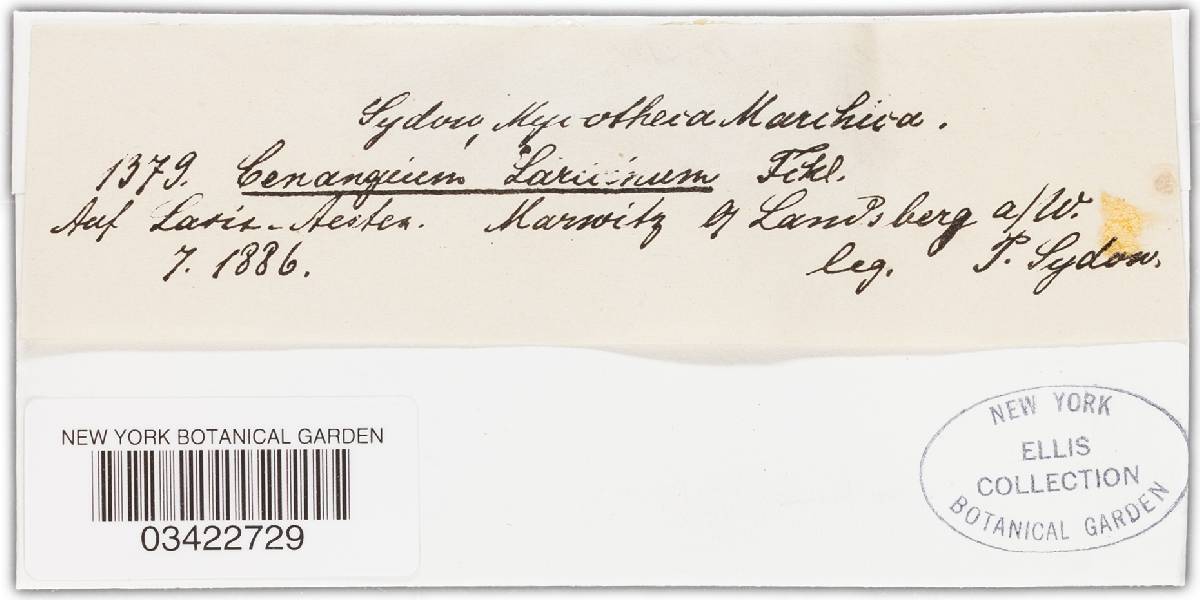 Sydow, Mycotheca Marchica.
1379. Cenangium Laricinum Fckl.
Auf Larix-Aesten. Marwitz b/ Landsberg a/W.
7. 1886. leg. P. Sydow.
NEW YORK BOTANICAL GARDEN
03422729
NEW YORK
ELLIS
COLLECTION
BOTANICAL GARDEN